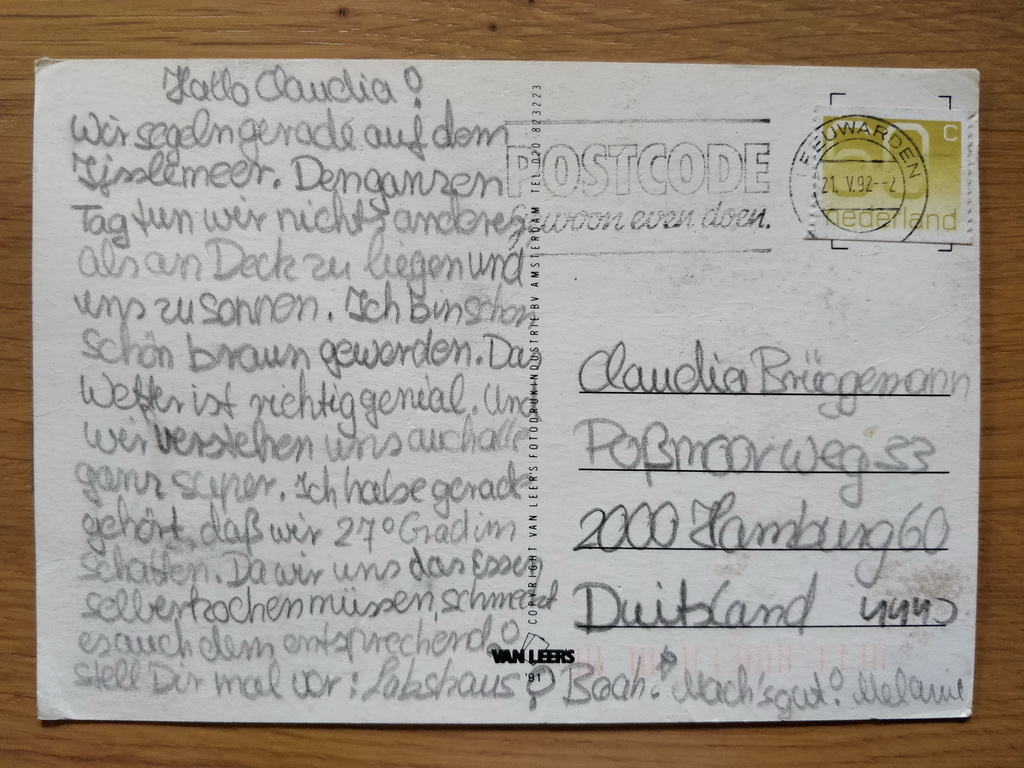 Hallo Claudia!
Wir segeln gerade auf dem
Ijsselmeer. Den ganzen
Tag tun wir nichts anderes
als an Deck zu liegen und
uns zu sonnen. Ich bin schon
schön braun geworden. Das
Wetter ist richtig genial. Und
wir verstehen uns auch alle
ganz super. Ich habe gerade
gehört, daß wir 27° Grad im
schatten. Da wir uns das Essen
selber kochen müssen, schmeckt
es auch dem entsprechend!
stell Dir mal vor: Labshaus! Boah! Mach's gut! Melanie
COPYRIGHT VAN LEER'S FOTODRUKINDUSTRIE BV AMSTERDAM TEL 020-823223
VAN LEERS
'91
POSTCODE
gewoon even doen.
LEEUWARDEN
21. V.92--2
60 c
nederland
Claudia Brüggemann
Poßmoorweg 33
2000 Hamburg 60
Duitsland